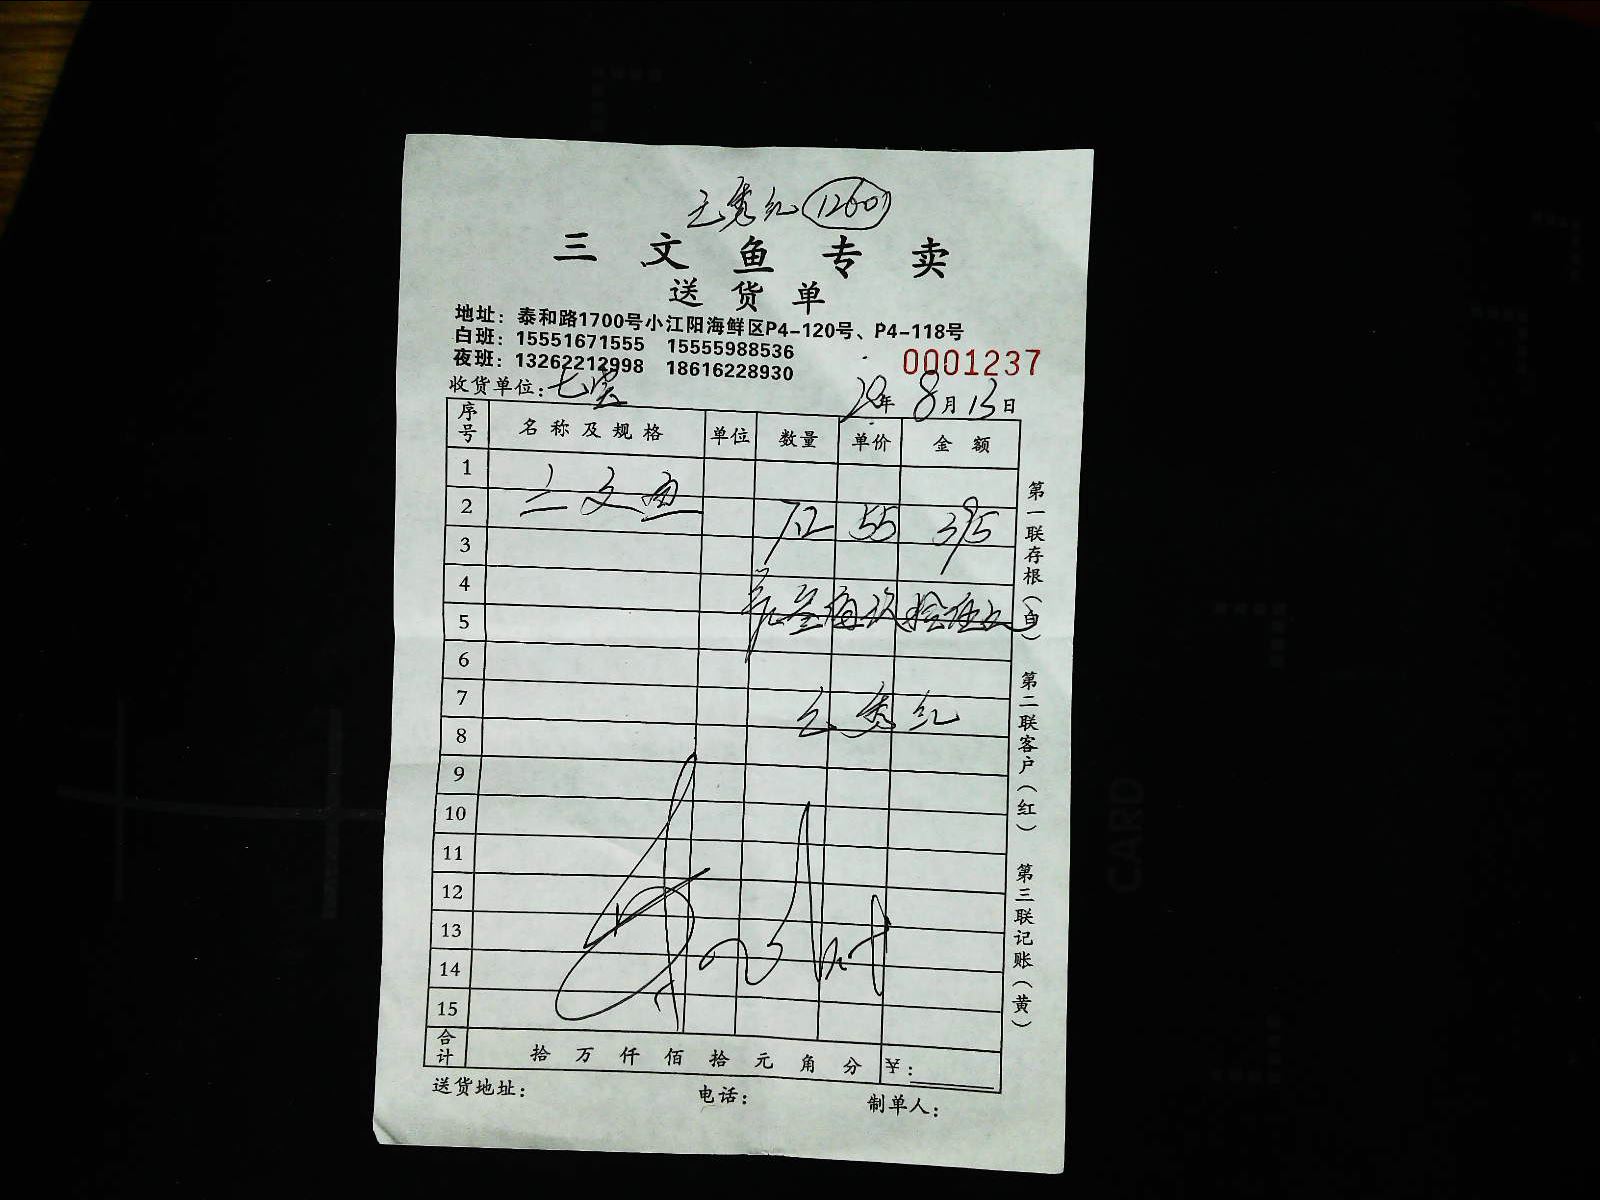 王秀红 1260
三文鱼专卖
送货单
地址：泰和路1700号小江阳海鲜区P4-120号、P4-118号
白班：15551671555 15555988536
夜班：13262212998 18616228930
0001237
收货单位：七宝 年 8月13日
序号 名称及规格 单位 数量 单价 金额
1
2 三文鱼 7.2 55 395
3
4
5 叁佰玖拾伍元
6
7 王秀红
8
9
10
11
12
13
14
15
合计 拾万仟佰拾元角分 ¥：
送货地址： 电话： 制单人：
第一联存根（白） 第二联客户（红） 第三联记账（黄）
CARD